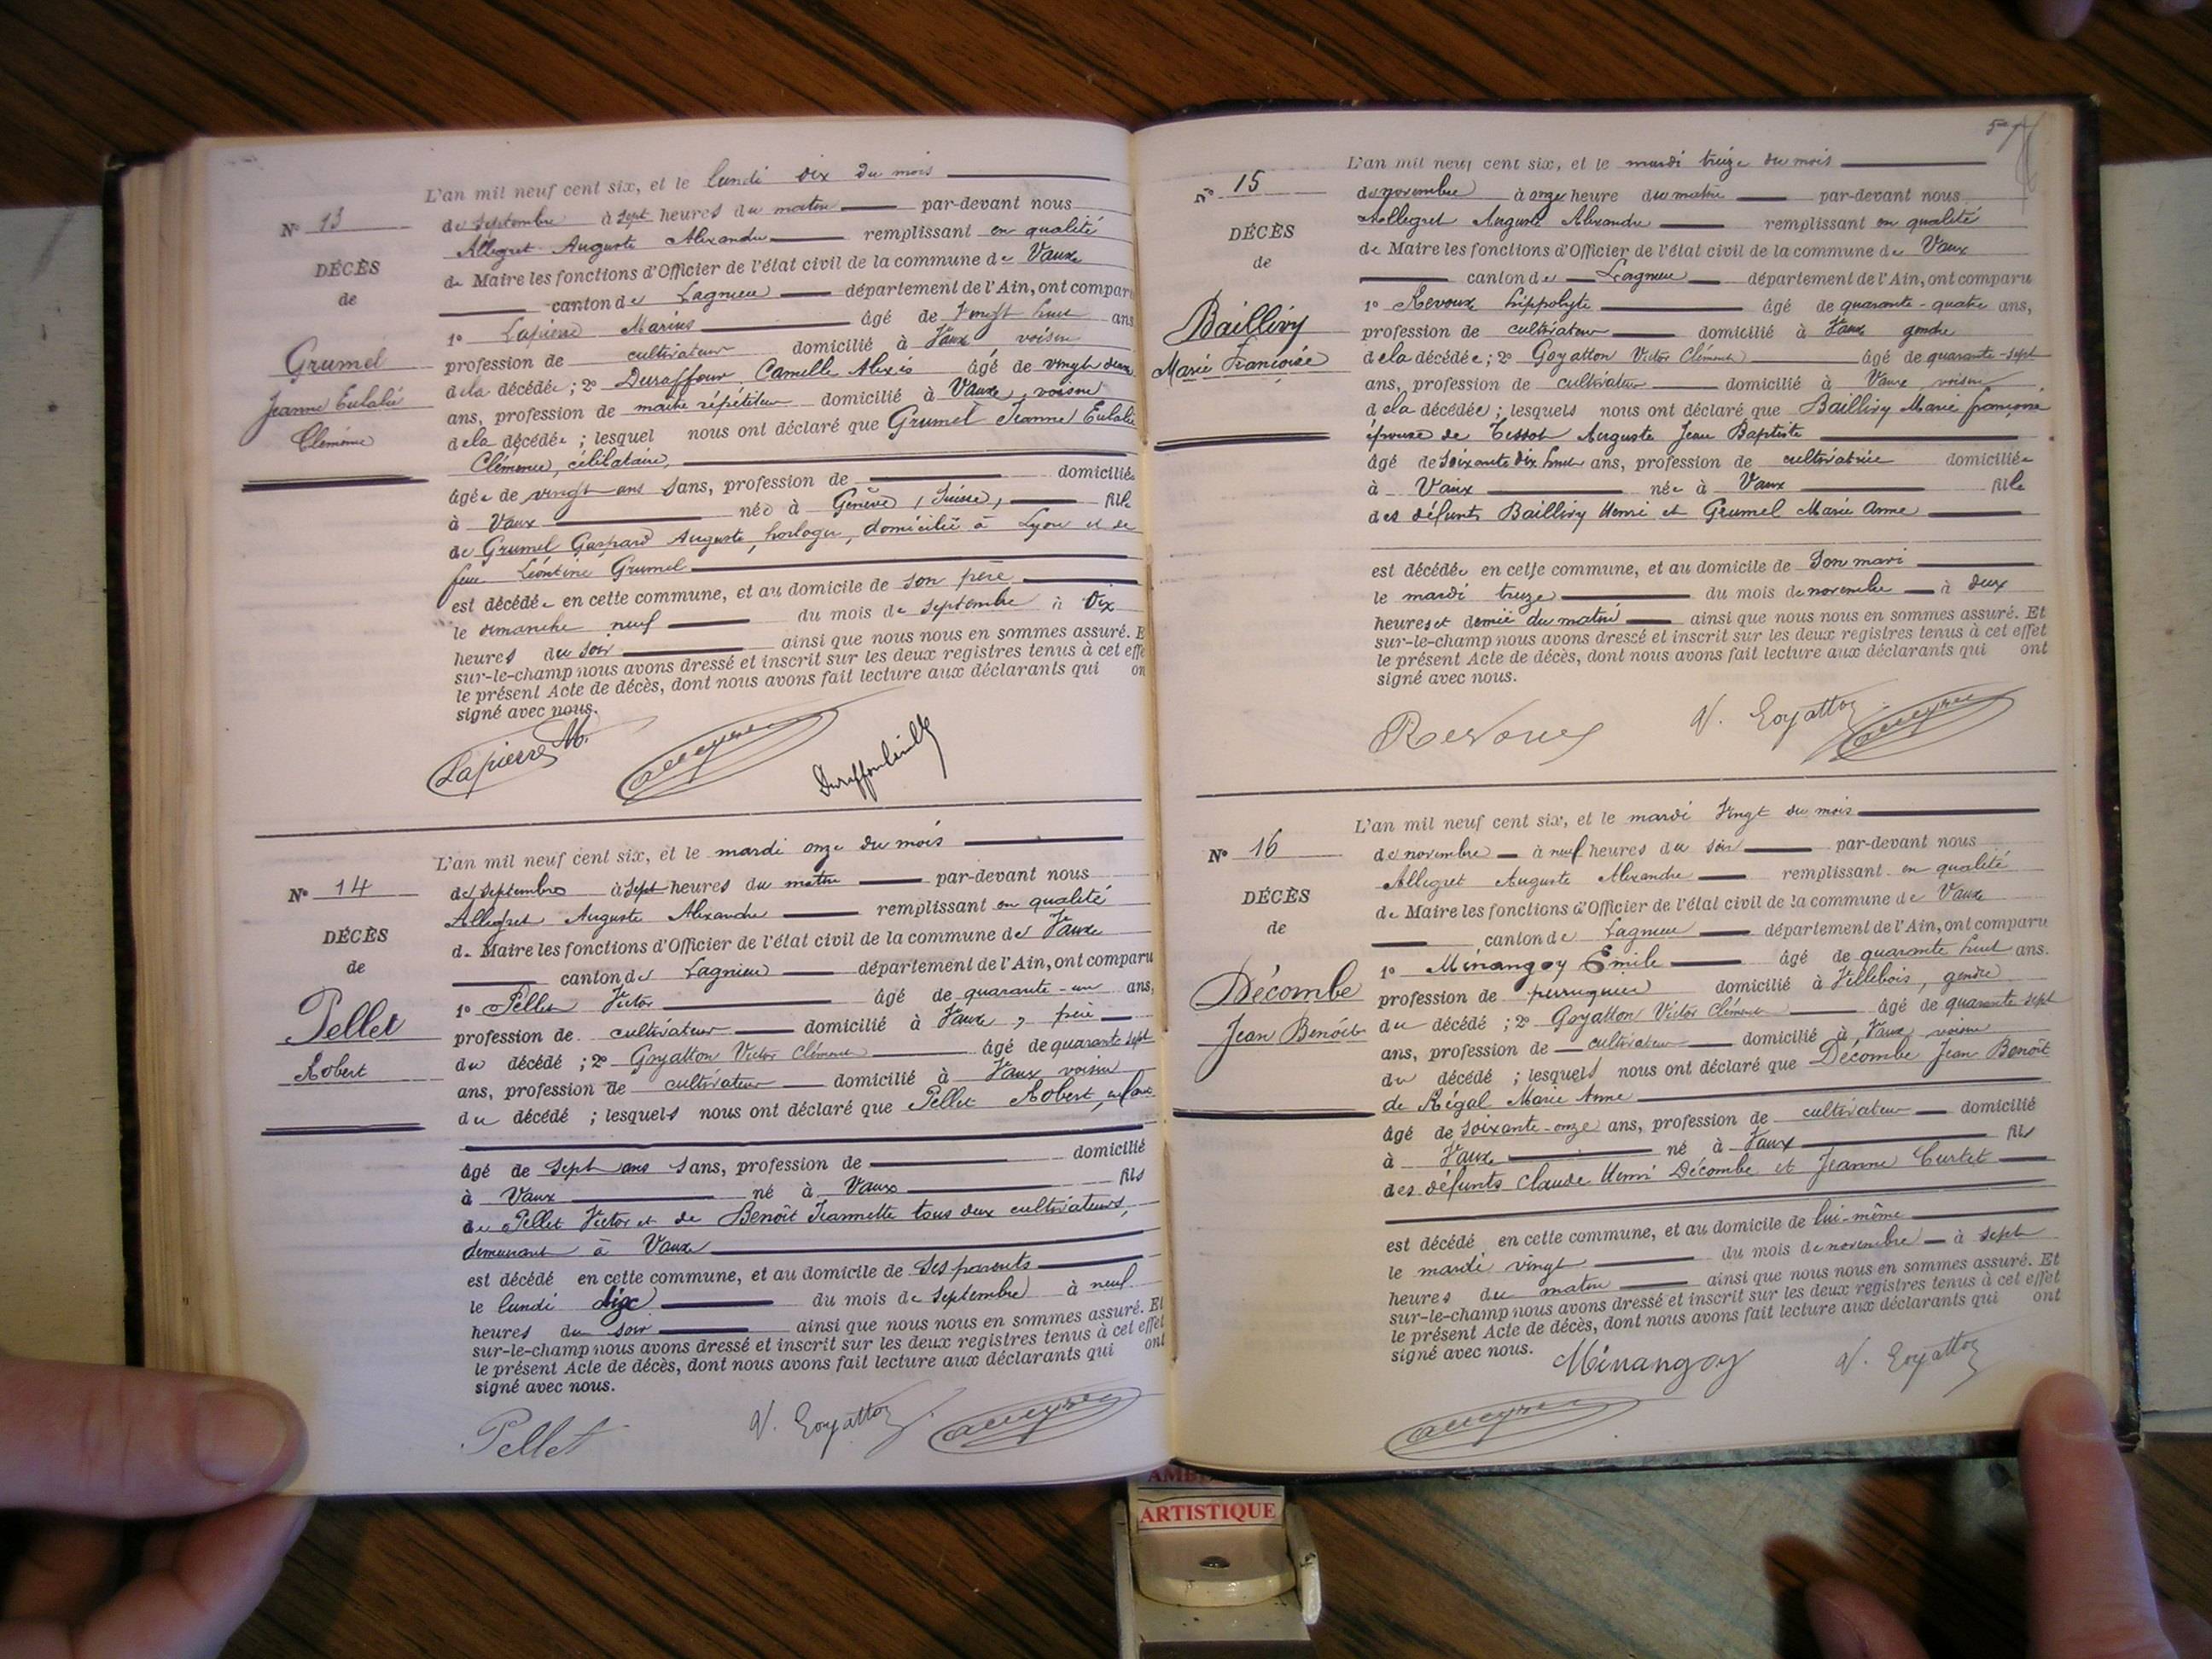 L'an mil neuf cent six, et le lundi dix du mois
N° 13
de septembre à sept heures du matin par-devant nous
Allegret Auguste Alexandre remplissant en qualité
DÉCÈS
de Maire les fonctions d'Officier de l'état civil de la commune de Vaux
de
canton de Lagnieu département de l'Ain, ont comparu
1° Lapierre Marius âgé de vingt huit ans
Grumel
profession de cultivateur domicilié à Vaux voisin
Jeanne Eulalie
de la décédée ; 2° Duraffour Camille Alexis âgé de vingt deux
Clémence
ans, profession de maître répétiteur domicilié à Vaux, voisin
de la décédée ; lesquel nous ont déclaré que Grumel Jeanne Eulalie
Clémence, célibataire,
âgée de vingt ans sans, profession de domiciliée
à Vaux née à Genève (Suisse) fille
de Grumel Gaspard Auguste, horloger, domicilié à Lyon et de
feue Léontine Grumel
est décédée en cette commune, et au domicile de son père
le dimanche neuf du mois de septembre à dix
heures du soir ainsi que nous nous en sommes assuré. E
sur-le-champ nous avons dressé et inscrit sur les deux registres tenus à cet effe
le présent Acte de décès, dont nous avons fait lecture aux déclarants qui on
signé avec nous.
Lapierre M.
L'an mil neuf cent six, et le mardi onze du mois
N° 14
de septembre à sept heures du matin par-devant nous
Allegret Auguste Alexandre remplissant en qualité
DÉCÈS
d. Maire les fonctions d'Officier de l'état civil de la commune de Vaux
de
canton de Lagnieu département de l'Ain, ont comparu
1° Pellet Victor âgé de quarante-un ans,
Pellet
profession de cultivateur domicilié à Vaux, père
Robert
du décédé ; 2° Goyatton Victor Clément âgé de quarante sept
ans, profession de cultivateur domicilié à Vaux voisin
du décédé ; lesquels nous ont déclaré que Pellet Robert, enfant
âgé de sept ans sans, profession de domicilié
à Vaux né à Vaux fils
de Pellet Victor et de Benoît Jeannette tous deux cultivateurs,
demeurant à Vaux
est décédé en cette commune, et au domicile de ses parents
le lundi dix du mois de septembre à neuf
heures du soir ainsi que nous nous en sommes assuré. Et
sur-le-champ nous avons dressé et inscrit sur les deux registres tenus à cet effet
le présent Acte de décès, dont nous avons fait lecture aux déclarants qui ont
signé avec nous.
Pellet V. Goyatton
L'an mil neuf cent six, et le mardi treize du mois
N° 15
de novembre à onze heure du matin par-devant nous
Allegret Auguste Alexandre remplissant en qualité
DÉCÈS
de Maire les fonctions d'Officier de l'état civil de la commune de Vaux
de
canton de Lagnieu département de l'Ain, ont comparu
1° Revoux hippolyte âgé de quarante-quatre ans,
Baillivy
profession de cultivateur domicilié à Vaux gendre
Marie Françoise
de la décédée ; 2° Goyatton Victor Clément âgé de quarante-sept
ans, profession de cultivateur domicilié à Vaux voisin
de la décédée ; lesquels nous ont déclaré que Baillivy Marie françoise
épouse de Tissot Auguste Jean Baptiste
âgé de soixante dix huit ans, profession de cultivatrice domiciliée
à Vaux née à Vaux fille
des défunts Baillivy Henri et Grumel Marie Anne
est décédée en cette commune, et au domicile de son mari
le mardi treize du mois de novembre à deux
heures et demie du matin ainsi que nous nous en sommes assuré. Et
sur-le-champ nous avons dressé et inscrit sur les deux registres tenus à cet effet
le présent Acte de décès, dont nous avons fait lecture aux déclarants qui ont
signé avec nous.
Revoux V. Goyatton
L'an mil neuf cent six, et le mardi vingt du mois
N° 16
de novembre à neuf heures du soir par-devant nous
Allegret Auguste Alexandre remplissant en qualité
DÉCÈS
de Maire les fonctions d'Officier de l'état civil de la commune de Vaux
de
canton de Lagnieu département de l'Ain, ont comparu
1° Minangoy Emile âgé de quarante huit ans.
Décombe
profession de perruquier domicilié à Villebois, gendre
Jean Benoît
du décédé ; 2° Goyatton Victor Clément âgé de quarante sept
ans, profession de cultivateur domicilié à Vaux, voisin
du décédé ; lesquels nous ont déclaré que Décombe Jean Benoît
de Régal Marie Anne
âgé de soixante-onze ans, profession de cultivateur domicilié
à Vaux né à Vaux fils
des défunts Claude Henri Décombe et Jeanne Curtet
est décédé en cette commune, et au domicile de lui-même
le mardi vingt du mois de novembre à sept
heures du matin ainsi que nous nous en sommes assuré. Et
sur-le-champ nous avons dressé et inscrit sur les deux registres tenus à cet effet
le présent Acte de décès, dont nous avons fait lecture aux déclarants qui ont
signé avec nous.
Minangoy V. Goyatton
ARTISTIQUE